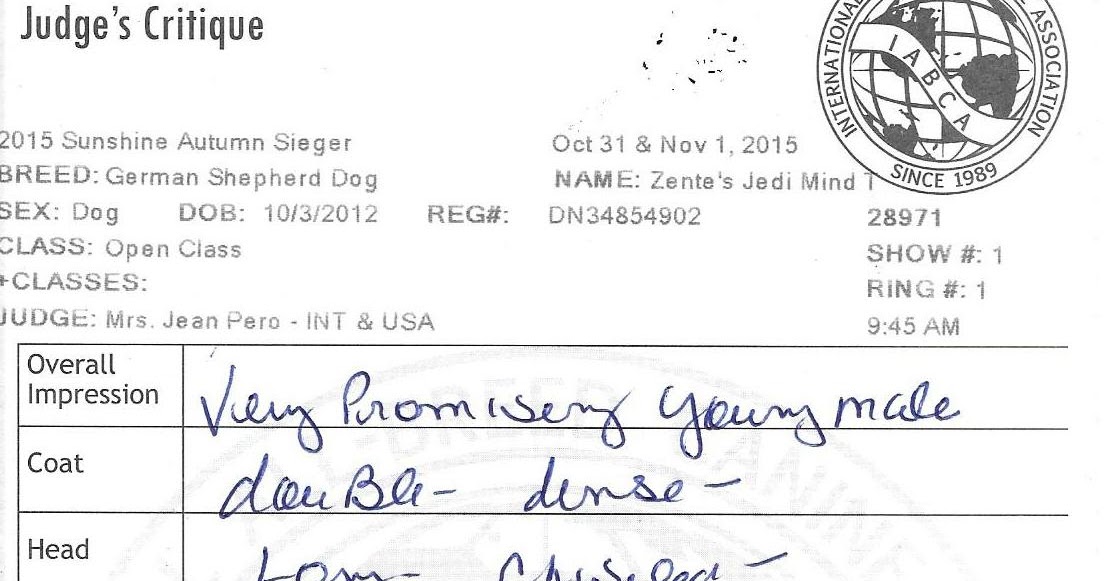 Judge's Critique
INTERNATIONAL
ASSOCIATION
IABCA
SINCE 1989
2015 Sunshine Autumn Sieger Oct 31 & Nov 1, 2015
BREED: German Shepherd Dog NAME: Zente's Jedi Mind T
SEX: Dog DOB: 10/3/2012 REG#: DN34854902 28971
CLASS: Open Class SHOW #: 1
+CLASSES: RING #: 1
JUDGE: Mrs. Jean Pero - INT & USA 9:45 AM
Overall
Impression Very Promising young male
Coat double - dense -
Head